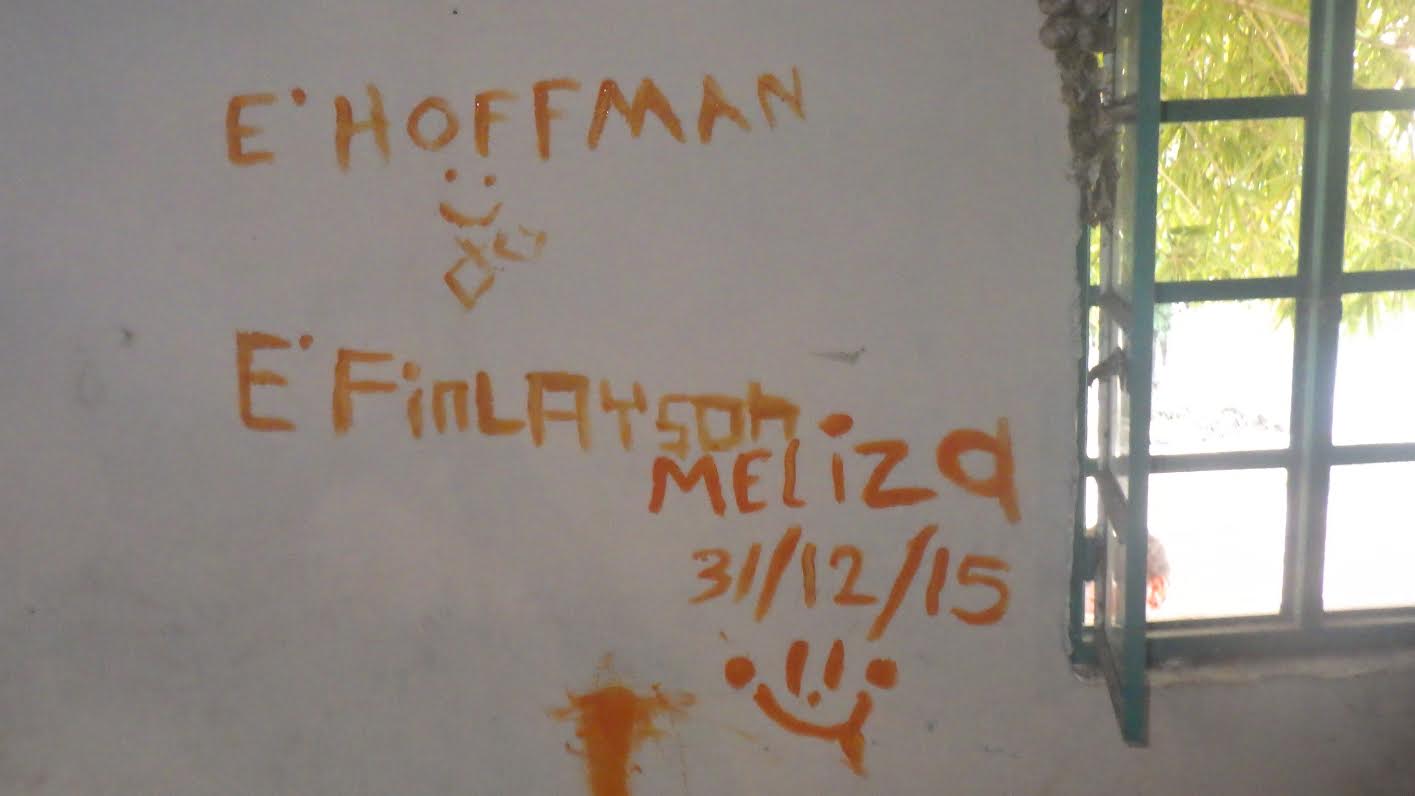 E' HOFFMAN
E' FinLAYSOn
MELiZa
31/12/15